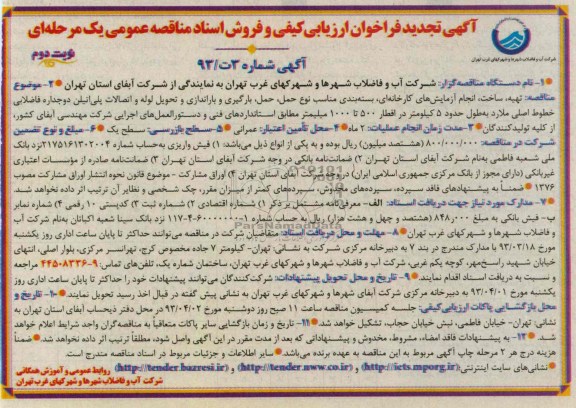 آگهی تجدید فراخوان ارزیابی کیفی و فروش اسناد مناقصه عمومی یک مرحله‌ای
نوبت دوم
آگهی شماره ۳ت/۹۳
شرکت آب و فاضلاب شهرها و شهرکهای غرب تهران
۱- نام دستگاه مناقصه‌گزار: شرکت آب و فاضلاب شهرها و شهرکهای غرب تهران به نمایندگی از شرکت آبفای استان تهران ۲- موضوع
مناقصه: تهیه، ساخت، انجام آزمایش‌های کارخانه‌ای، بسته‌بندی مناسب نوع حمل، حمل، بارگیری و باراندازی و تحویل لوله و اتصالات پلی‌اتیلن دوجداره فاضلابی
خطوط اصلی ملارد به‌طول حدود ۵ کیلومتر در اقطار ۵۰۰ تا ۱۰۰۰ میلیمتر مطابق استانداردهای فنی و دستورالعمل‌های اجرایی شرکت مهندسی آبفای کشور،
از کلیه تولیدکنندگان ۳- مدت زمان انجام عملیات: ۲ ماه ۴- محل تأمین اعتبار: عمرانی ۵- سطح بازرسی: سطح یک ۶- مبلغ و نوع تضمین
شرکت در مناقصه: ۸۰۰/۰۰۰/۰۰۰ (هشتصد میلیون) ریال بوده و به یکی از انواع ذیل می‌باشد: ۱) فیش واریزی به‌حساب شماره ۲۱۷۵۱۶۱۳۰۲۰۰۴ نزد بانک
ملی شعبه فاطمی به‌نام شرکت آبفای استان تهران ۲) ضمانت‌نامه بانکی در وجه شرکت آبفای استان تهران ۳) ضمانت‌نامه صادره از مؤسسات اعتباری
غیربانکی (دارای مجوز از بانک مرکزی جمهوری اسلامی ایران) دروجه شرکت آبفای استان تهران ۴) اوراق مشارکت - موضوع قانون نحوه انتشار اوراق مشارکت مصوب
۱۳۷۶ ضمناً به پیشنهادهای فاقد سپرده، سپرده‌های مخدوش، سپرده‌های کمتر از میزان مقرر، چک شخصی و نظایر آن ترتیب اثر داده نخواهد شد.
۷- مدارک مورد نیاز جهت دریافت اسناد: الف- معرفی‌نامه مشتمل بر ذکر ۱) شماره اقتصادی ۲) شماره ثبت ۳) کدپستی ۱۰ رقمی ۴) شماره نمابر
ب- فیش بانکی به مبلغ ۸۴۸/۰۰۰ (هشتصد و چهل و هشت هزار) ریال به حساب شماره نزد بانک سینا شعبه اکباتان به‌نام شرکت آب
و فاضلاب شهرها و شهرکهای غرب تهران ۸- مهلت و محل دریافت اسناد: متقاضیان شرکت در مناقصه می‌توانند حداکثر تا پایان ساعت اداری روز یکشنبه
مورخ ۹۳/۰۳/۱۸ با مدارک مندرج در بند ۷ به دبیرخانه مرکزی شرکت به نشانی: تهران- کیلومتر ۷ جاده مخصوص کرج، تهرانسر مرکزی، بلوار اصلی، انتهای
خیابان شهید راسخ‌مهر، کوچه یکم غربی، شرکت آب و فاضلاب شهرها و شهرکهای غرب تهران، ساختمان شماره یک، تلفن‌های تماس: ۹-۴۴۵۰۸۳۳۶ مراجعه
و نسبت به دریافت اسناد اقدام نمایند. ۹- تاریخ و محل تحویل پیشنهادات: شرکت‌کنندگان می‌توانند پیشنهادات خود را حداکثر تا پایان ساعت اداری روز
یکشنبه مورخ ۹۳/۰۴/۰۱ به دبیرخانه مرکزی شرکت آبفای شهرها و شهرکهای غرب تهران به نشانی پیش گفته در قبال اخذ رسید تحویل نمایند. ۱۰- تاریخ و
محل بازگشایی پاکات ارزیابی کیفی: جلسه کمیسیون مناقصه ساعت ۱۱ صبح روز دوشنبه مورخ ۹۳/۰۴/۰۲ در محل دفتر ذیحساب آبفای استان تهران به
نشانی: تهران- خیابان فاطمی، نبش خیابان حجاب، تشکیل خواهد شد. ۱۱- تاریخ و زمان بازگشایی سایر پاکات متعاقباً به مناقصه‌گران واجد شرایط اعلام خواهد
شد. ۱۲- به پیشنهادات فاقد امضاء، مشروط، مخدوش و پیشنهاداتی که بعد از مدت مقرر در این آگهی واصل شود، مطلقاً ترتیب اثر داده نخواهد شد. ضمناً
هزینه درج هر ۲ مرحله چاپ آگهی مربوط به این مناقصه به عهده برنده می‌باشد. سایر اطلاعات و جزئیات مربوط در اسناد مناقصه مندرج است.
نشانی‌های سایت اینترنتی: (http://iets.mporg.ir) و (http://tender.nww.co.ir) و (http://tender.bazresi.ir)
روابط عمومی و آموزش همگانی
شرکت آب و فاضلاب شهرها و شهرکهای غرب تهران